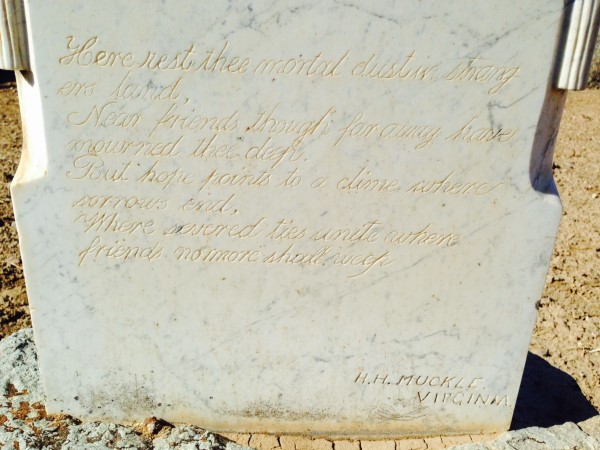 Here rest thee mortal dust in strang
ers land,
Near friends though far away have
mourned thee deep.
But hope points to a clime where
sorrows end,
Where severed ties unite where
friends no more shall weep
H.H. MUCKLE.
VIRGINIA